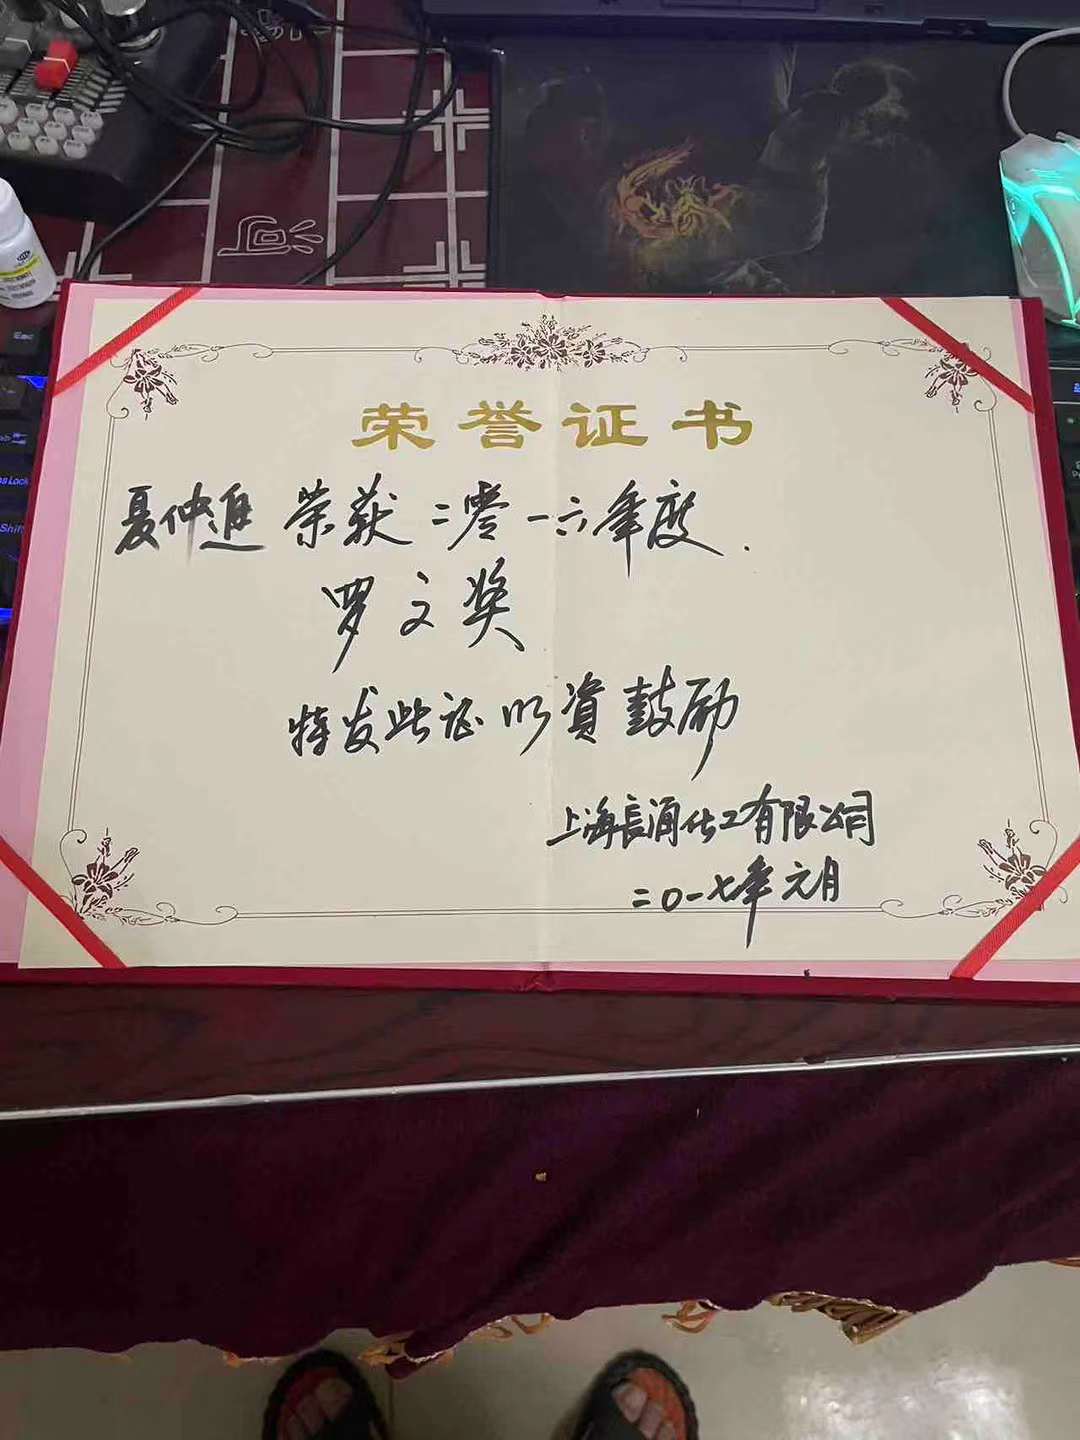 荣誉证书
夏仲進 荣获 二零一六年度.
罗文奖
特发此证 以資鼓励
上海長涌化工有限公司
二0一七年元月
Esc
Shift